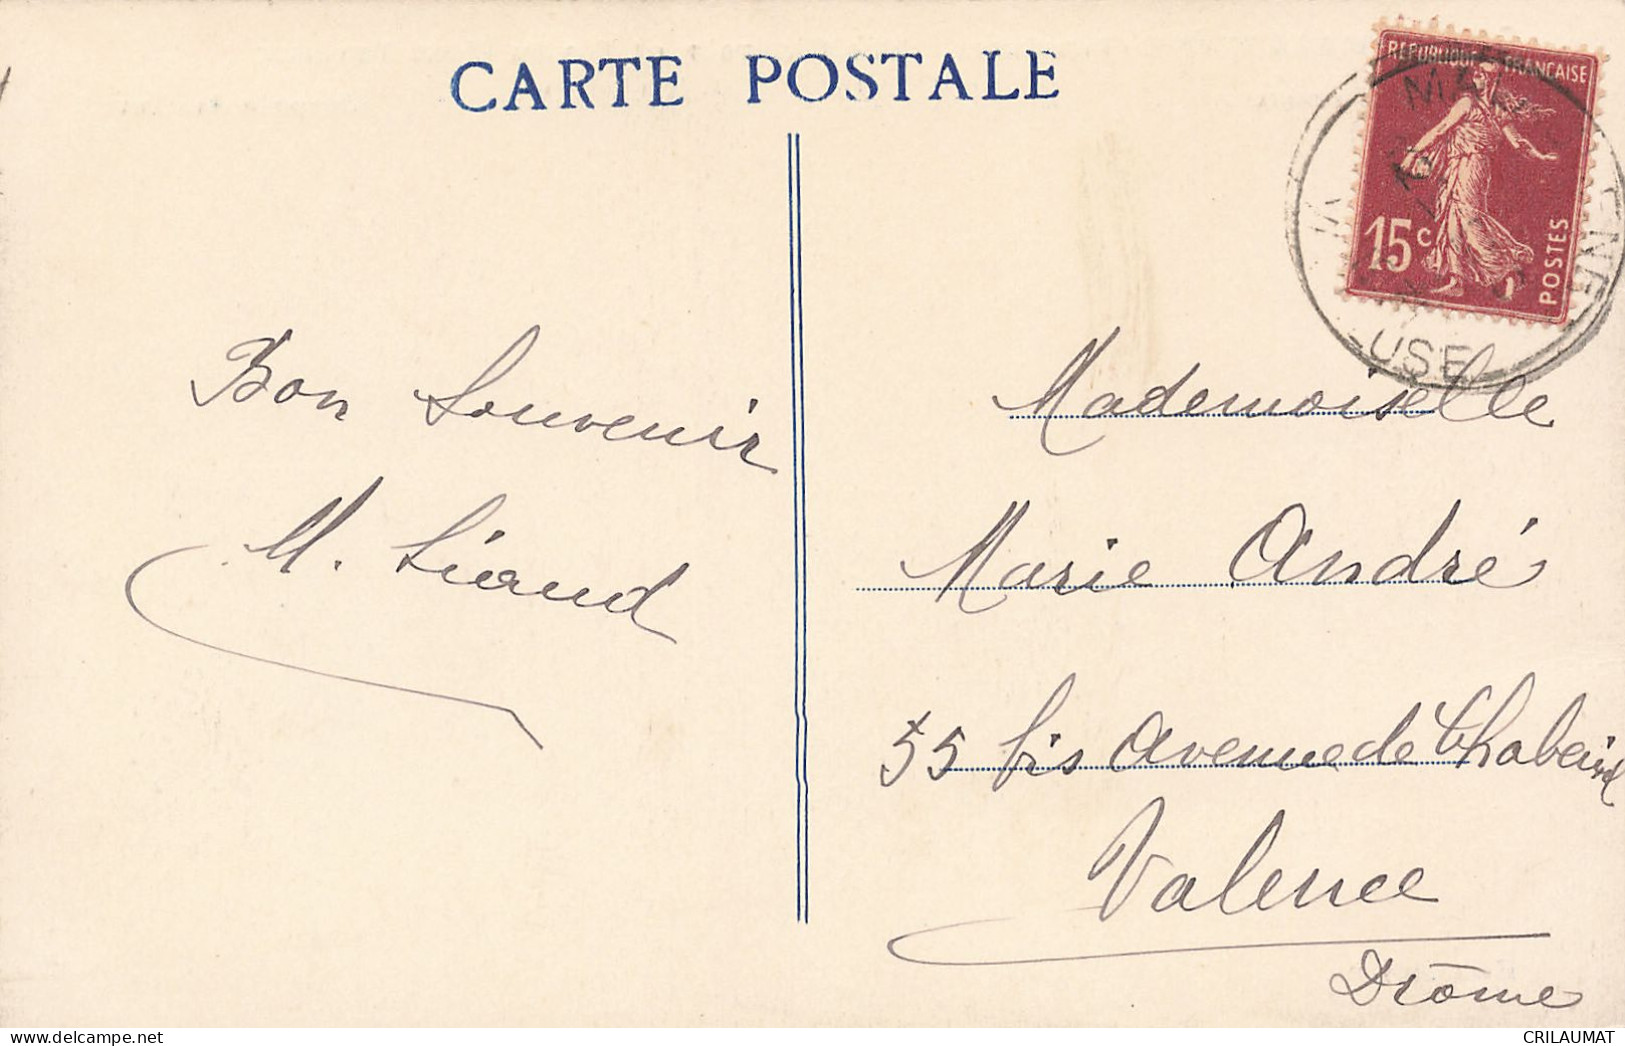 CARTE POSTALE
REPUBLIQUE FRANÇAISE
15 c
POSTES
USE
Bon Souvenir
M. Liaud
Mademoiselle
Marie André
55 bis Avenue de Chabeuil
Valence
Drôme
CRILAUMAT